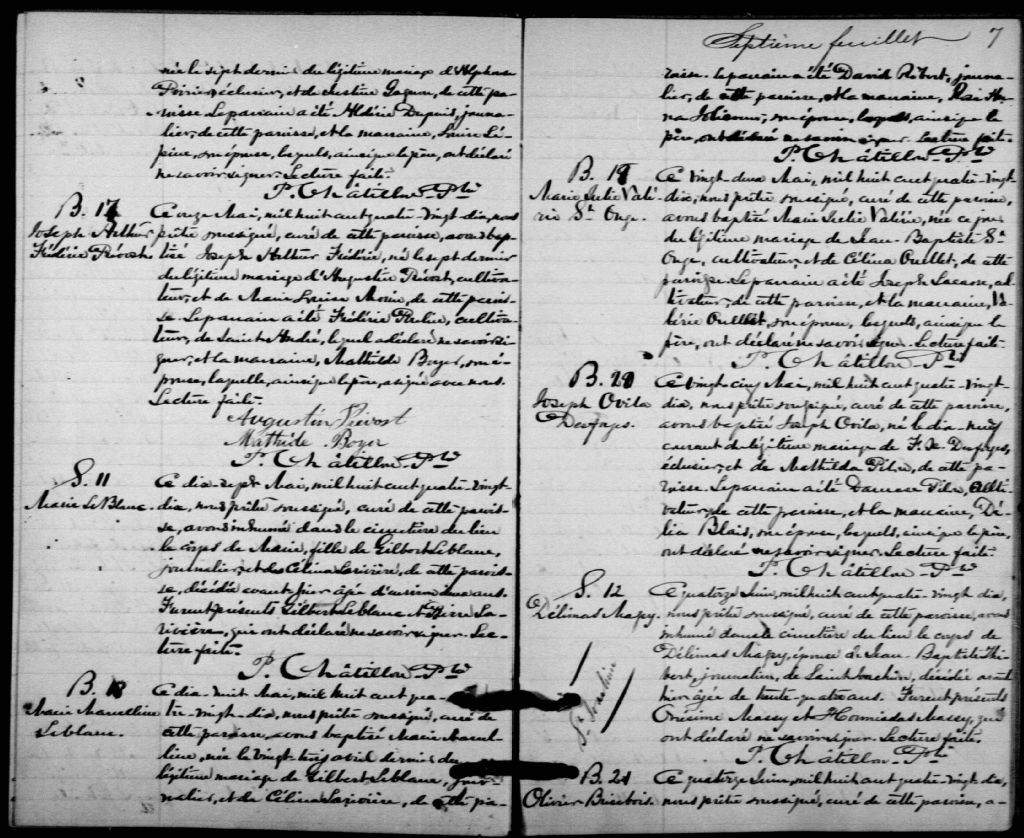 née le sept dernier du légitime mariage d'Alphonse
Poirier, éclusier, et de Justine Gagnon, de cette pa-
roisse. Le parrain a été Aldéric Dupuis, journa-
lier, de cette paroisse, et la marraine, Louise Lé-
pine, son épouse, lesquels, ainsi que le père, ont déclaré
ne savoir signer. Lecture faite.
P. Châtillon Ptre
B. 17
Joseph Arthur
Frédéric Prévost
Ce onze Mai, mil huit cent quatre-vingt dix, nous
prêtre soussigné, curé de cette paroisse, avons bap-
tisé Joseph Arthur Frédéric, né le sept dernier
du légitime mariage d'Augustin Prévost, cultiva-
teur, et de Marie Louise Morin, de cette parois-
se. Le parrain a été Frédéric, cultiva-
teur, de Saint André, lequel a déclaré ne savoir si-
gner, et la marraine, Mathilde Boyer, son é-
pouse, laquelle, ainsi que le père, a signé avec nous.
Lecture faite.
Augustin Prévost
Mathilde Boyer
P. Châtillon Ptre
S. 11
Marie LeBlanc.
Ce dix-sept Mai, mil huit cent quatre-vingt-
dix, nous prêtre soussigné, curé de cette parois-
se, avons inhumé dans le cimetière du lieu
le corps de Marie, fille de Gilbert Leblanc,
journalier, et de Célina Larivière, de cette parois-
se, décédée avant hier âgée d'environ deux ans.
Furent présents Gilbert Leblanc et La-
rivière, qui ont déclaré ne savoir signer. Lec-
ture faite.
P. Châtillon Ptre
B. 18
Marie Marcelline
Leblanc.
Ce dix-huit Mai, mil huit cent qua-
tre-vingt-dix, nous prêtre soussigné, curé de
cette paroisse, avons baptisé Marie Marcel-
line, née le vingt-trois avril dernier du
légitime mariage de Gilbert Leblanc, jour-
nalier, et de Célina Larivière, de cette pa-
Septième feuillet 7
roisse. Le parrain a été David Robert, journa-
lier, de cette paroisse, et la marraine, Rose An-
na Jolicoeur, son épouse, lesquels, ainsi que le
père, ont déclaré ne savoir signer. Lecture faite.
P. Châtillon Ptre
B. 19
Marie Julie Valé-
rie St. Onge.
Ce vingt deux Mai, mil huit cent quatre-vingt
dix, nous prêtre soussigné, curé de cette paroisse,
avons baptisé Marie Julie Valérie, née ce jour
du légitime mariage de Jean-Baptiste St.
Onge, cultivateur, et de Célina Ouellet, de cette
paroisse. Le parrain a été Joseph Lacasse, cul-
tivateur, de cette paroisse, et la marraine, Va-
lérie Ouellet, son épouse, lesquels, ainsi que le
père, ont déclaré ne savoir signer. Lecture faite.
P. Châtillon Ptre
B. 20
Joseph Ovila
Desforges.
Ce vingt cinq Mai, mil huit cent quatre-vingt-
dix, nous prêtre soussigné, curé de cette paroisse,
avons baptisé Joseph Ovila, né le dix-neuf
courant du légitime mariage de F. X. Desforges,
éclusier, et de Mathilda Pilon, de cette pa-
roisse. Le parrain a été Damase Pilon, culti-
vateur, de cette paroisse, et la marraine, Dé-
lia Blais, son épouse, lesquels, ainsi que le père,
ont déclaré ne savoir signer. Lecture faite.
P. Châtillon Ptre
S. 12
Délimas Massy.
Ce quatorze Juin, mil huit cent quatre-vingt dix,
nous prêtre soussigné, curé de cette paroisse, avons
inhumé dans le cimetière du lieu le corps de
Délimas Massy, épouse de Jean-Baptiste Thi-
bert, journalier, de Saint Joachim, décédée avant
hier âgée de trente-quatre ans. Furent présents
Onésime Massy et Hormisdas Massy, qui
ont déclaré ne savoir signer. Lecture faite.
P. Châtillon Ptre
St. Joachim
B. 21
Olivier Brisebois.
Ce quatorze Juin, mil huit cent quatre-vingt dix,
nous prêtre soussigné, curé de cette paroisse, a-